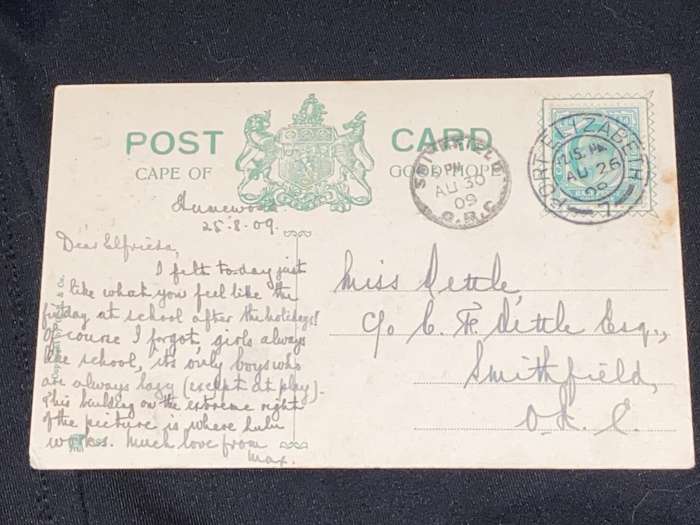 POST CARD
CAPE OF GOOD HOPE
SMITHFIELD
PM
AU 30
09
O.R.C.
PORT ELIZABETH
PM
AU 26
09
1
Humewood
25.8.09.
Dear Elfrieda,
I felt to-day just
like what you feel like the
first day at school after the holidays!
Of course I forgot, girls always
like school, its only boys who
are always lazy (except at play).
This building on the extreme right
of the picture is where Lulu
works. Much love from
Max.
Miss Dettle
c/o C. F. Dettle Esq.,
Smithfield,
O. R. C.